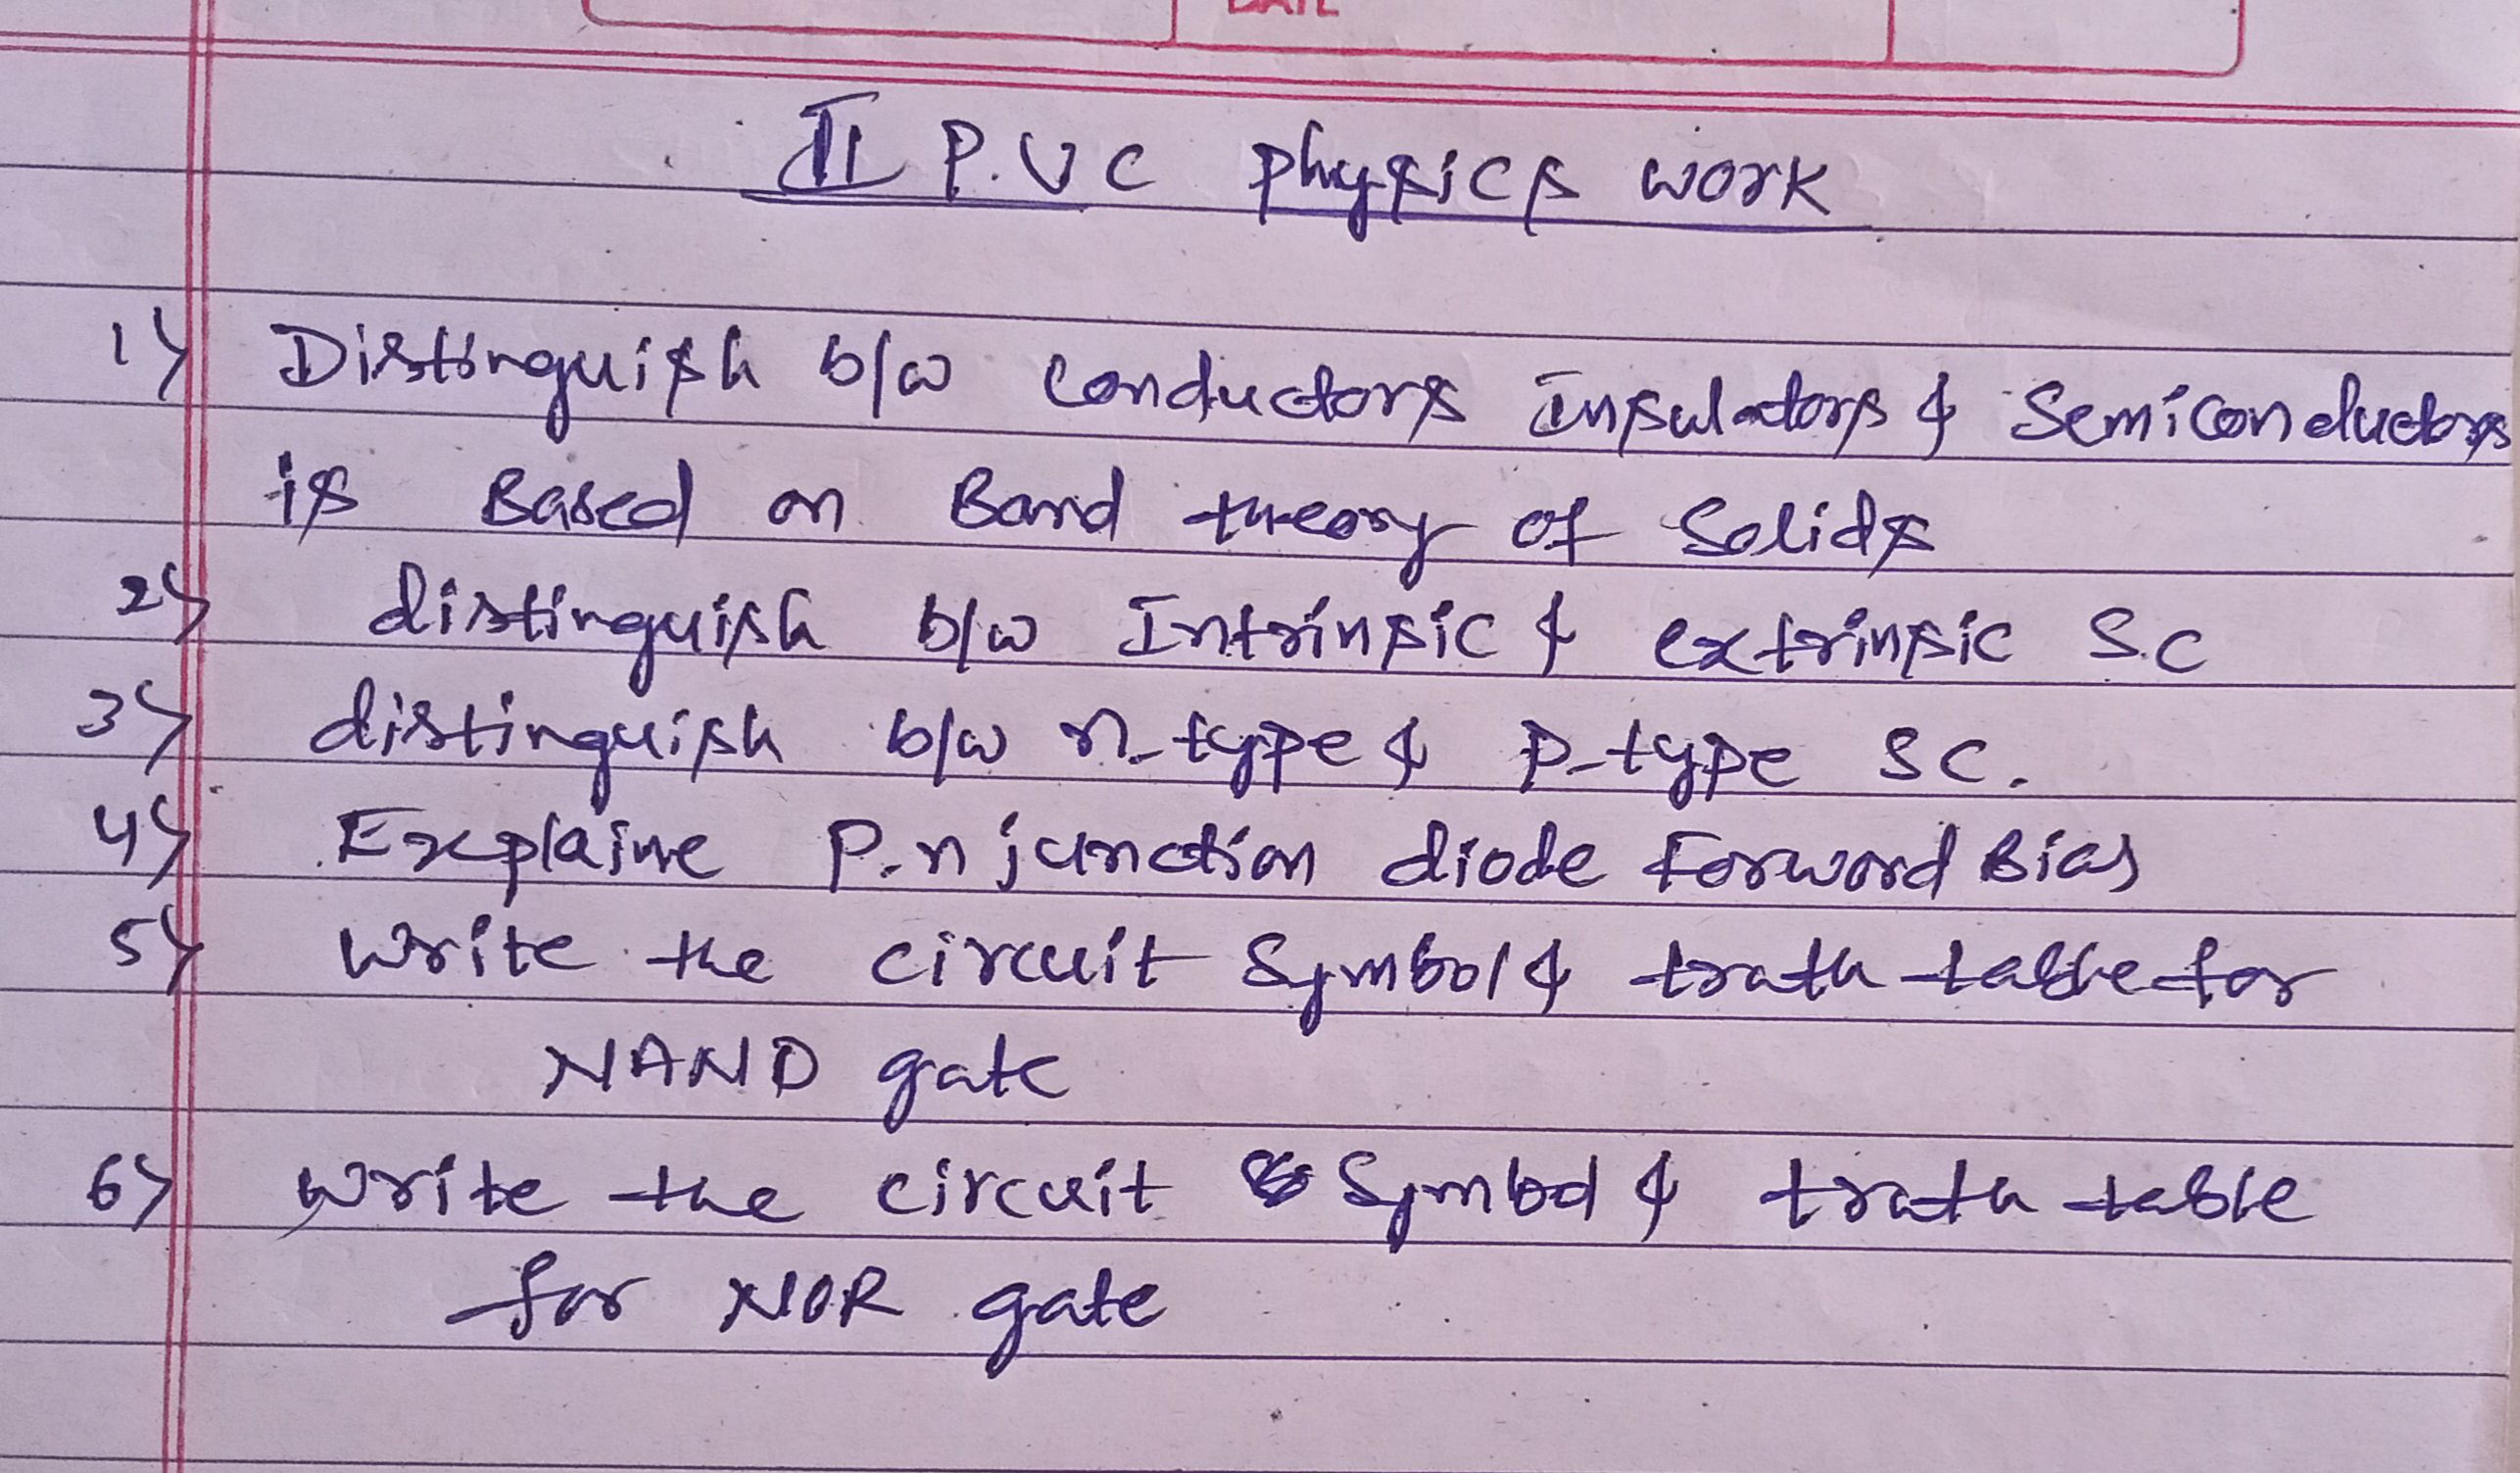 DATE
II P.U C physics work
1) Distinguish b/w conductors Insulators & Semiconductors
is Based on Band theory of Solids
2) distinguish b/w Intrinsic & extrinsic S.C
3) distinguish b/w n-type & p-type SC.
4) Explaine P.n junction diode Forword Bias
5) Write the circuit Symbol & trath table for
NAND gate
6) write the circuit Symbol & trath table
for NOR gate